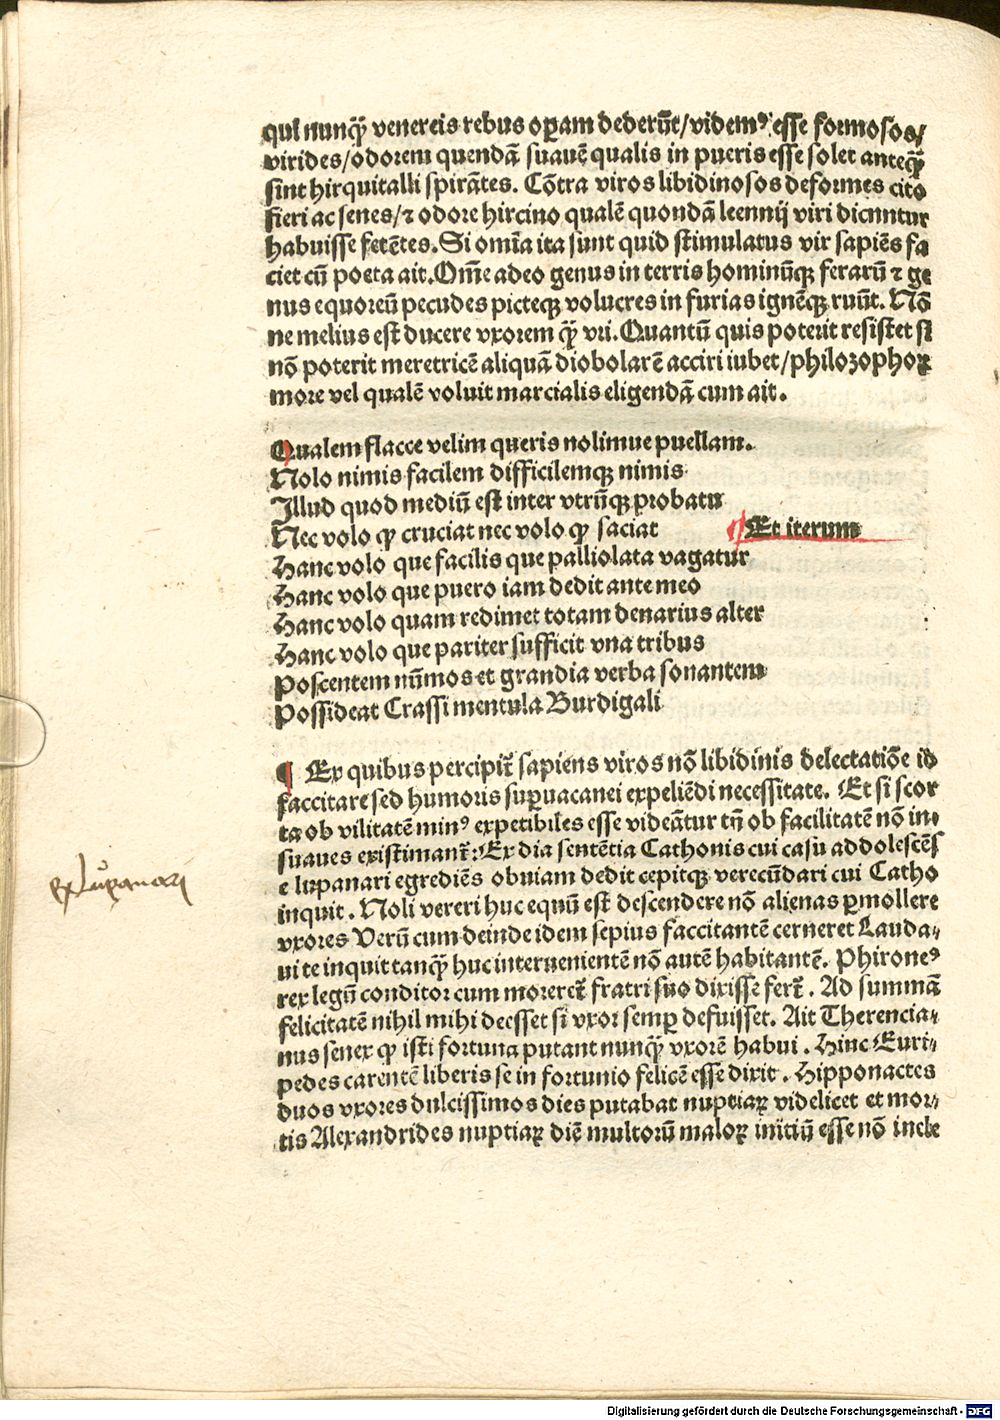 qui nunq̃ venereis rebus oꝑam dederũt/videmꝰ esse formosos/
virides/odorem quendã suauẽ qualis in pueris esse solet anteq̃
sint hirquitalli spirãtes. Cõtra viros libidinosos deformes cito
fieri ac senes/⁊ odore hircino qualẽ quondã leennij viri dicũtur
habuisse fetẽtes. Si om̃ia ita sunt quid stimulatus vir sapiẽs fa
ciet cũ poeta ait. Om̃e adeo genus in terris hominũqꝫ ferarũ ⁊ ge
nus equoreũ pecudes picteqꝫ volucres in furias ignẽqꝫ ruũt. Nõ
ne melius est ducere vxorem q̃ vri. Quantũ quis poterit resistet si
nõ poterit meretricẽ aliquã diobolarẽ acciri iubet/philozophoꝝ
more vel qualẽ voluit marcialis eligendã cum ait.
Qualem flacce velim queris nolimue puellam.
Nolo nimis facilem difficilemqꝫ nimis
Illud quod mediũ est inter vtrũqꝫ probatu
Nec volo ꝙ cruciat nec volo ꝙ saciat ¶ Et iterum
Hanc volo que facilis que palliolata vagatur
Hanc volo que puero iam dedit ante meo
Hanc volo quam redimet totam denarius alter
Hanc volo que pariter sufficit vna tribus
Poscentem nũmos et grandia verba sonantem
Possideat Crassi mentula Burdigali
¶ Ex quibus percipit̃ sapiens viros nõ libidinis delectatiõe id
faccitare sed humoris suꝑuacanei expeliẽdi necessitate. Et si scor
ta ob vilitatẽ minꝰ expetibiles esse videãtur tñ ob facilitatẽ nõ in⸗
suaues existimant̃: Ex dia sentẽtia Cathonis cui casu addolescẽs
e lupanari egrediẽs obuiam dedit cepitqꝫ verecũdari cui Catho
inquit. Noli vereri huc equũ est descendere nõ alienas ꝑmollere
vxores Verũ cum deinde idem sepius faccitantẽ cerneret Lauda⸗
ui te inquit tanq̃ huc interuenientẽ nõ autẽ habitantẽ. Phironeꝰ
rex legũ conditor cum moreret̃ fratri suo dixisse fert̃. Ad summã
felicitatẽ nihil mihi deesset si vxor semꝑ defuisset. Ait Therencia⸗
nus senex ꝙ isti fortuna putant nunq̃ vxorẽ habui. Hinc Euri⸗
pedes carentẽ liberis se in fortunio felicẽ esse dixit. Hipponactes
duos vxores dulcissimos dies putabat nuptiaꝝ videlicet et mor⸗
tis Alexandrides nuptiaꝝ diẽ multorũ maloꝝ initiũ esse nõ incle
ex Lupanari
Digitalisierung gefördert durch die Deutsche Forschungsgemeinschaft - DFG